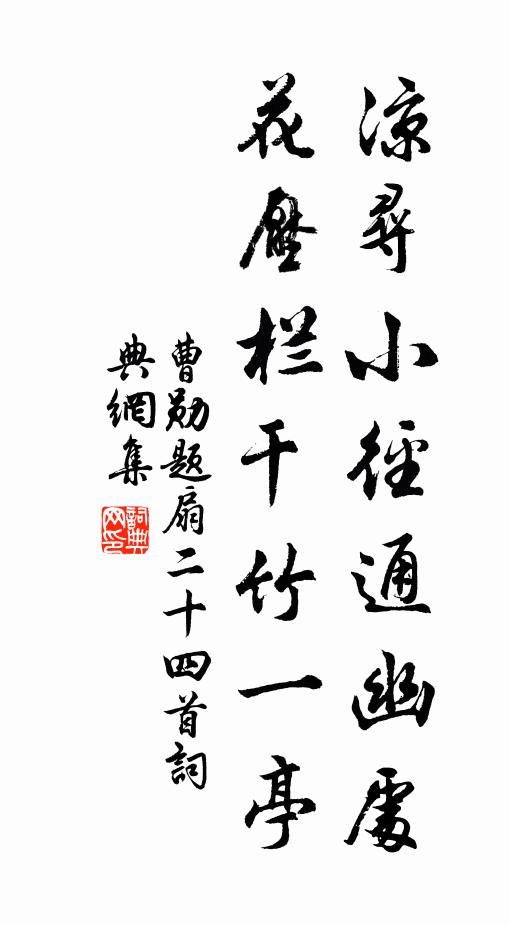 涼尋小徑通幽處
花壓栏干竹一亭
曹勛題扇二十四首詞
典網集
詞典網印